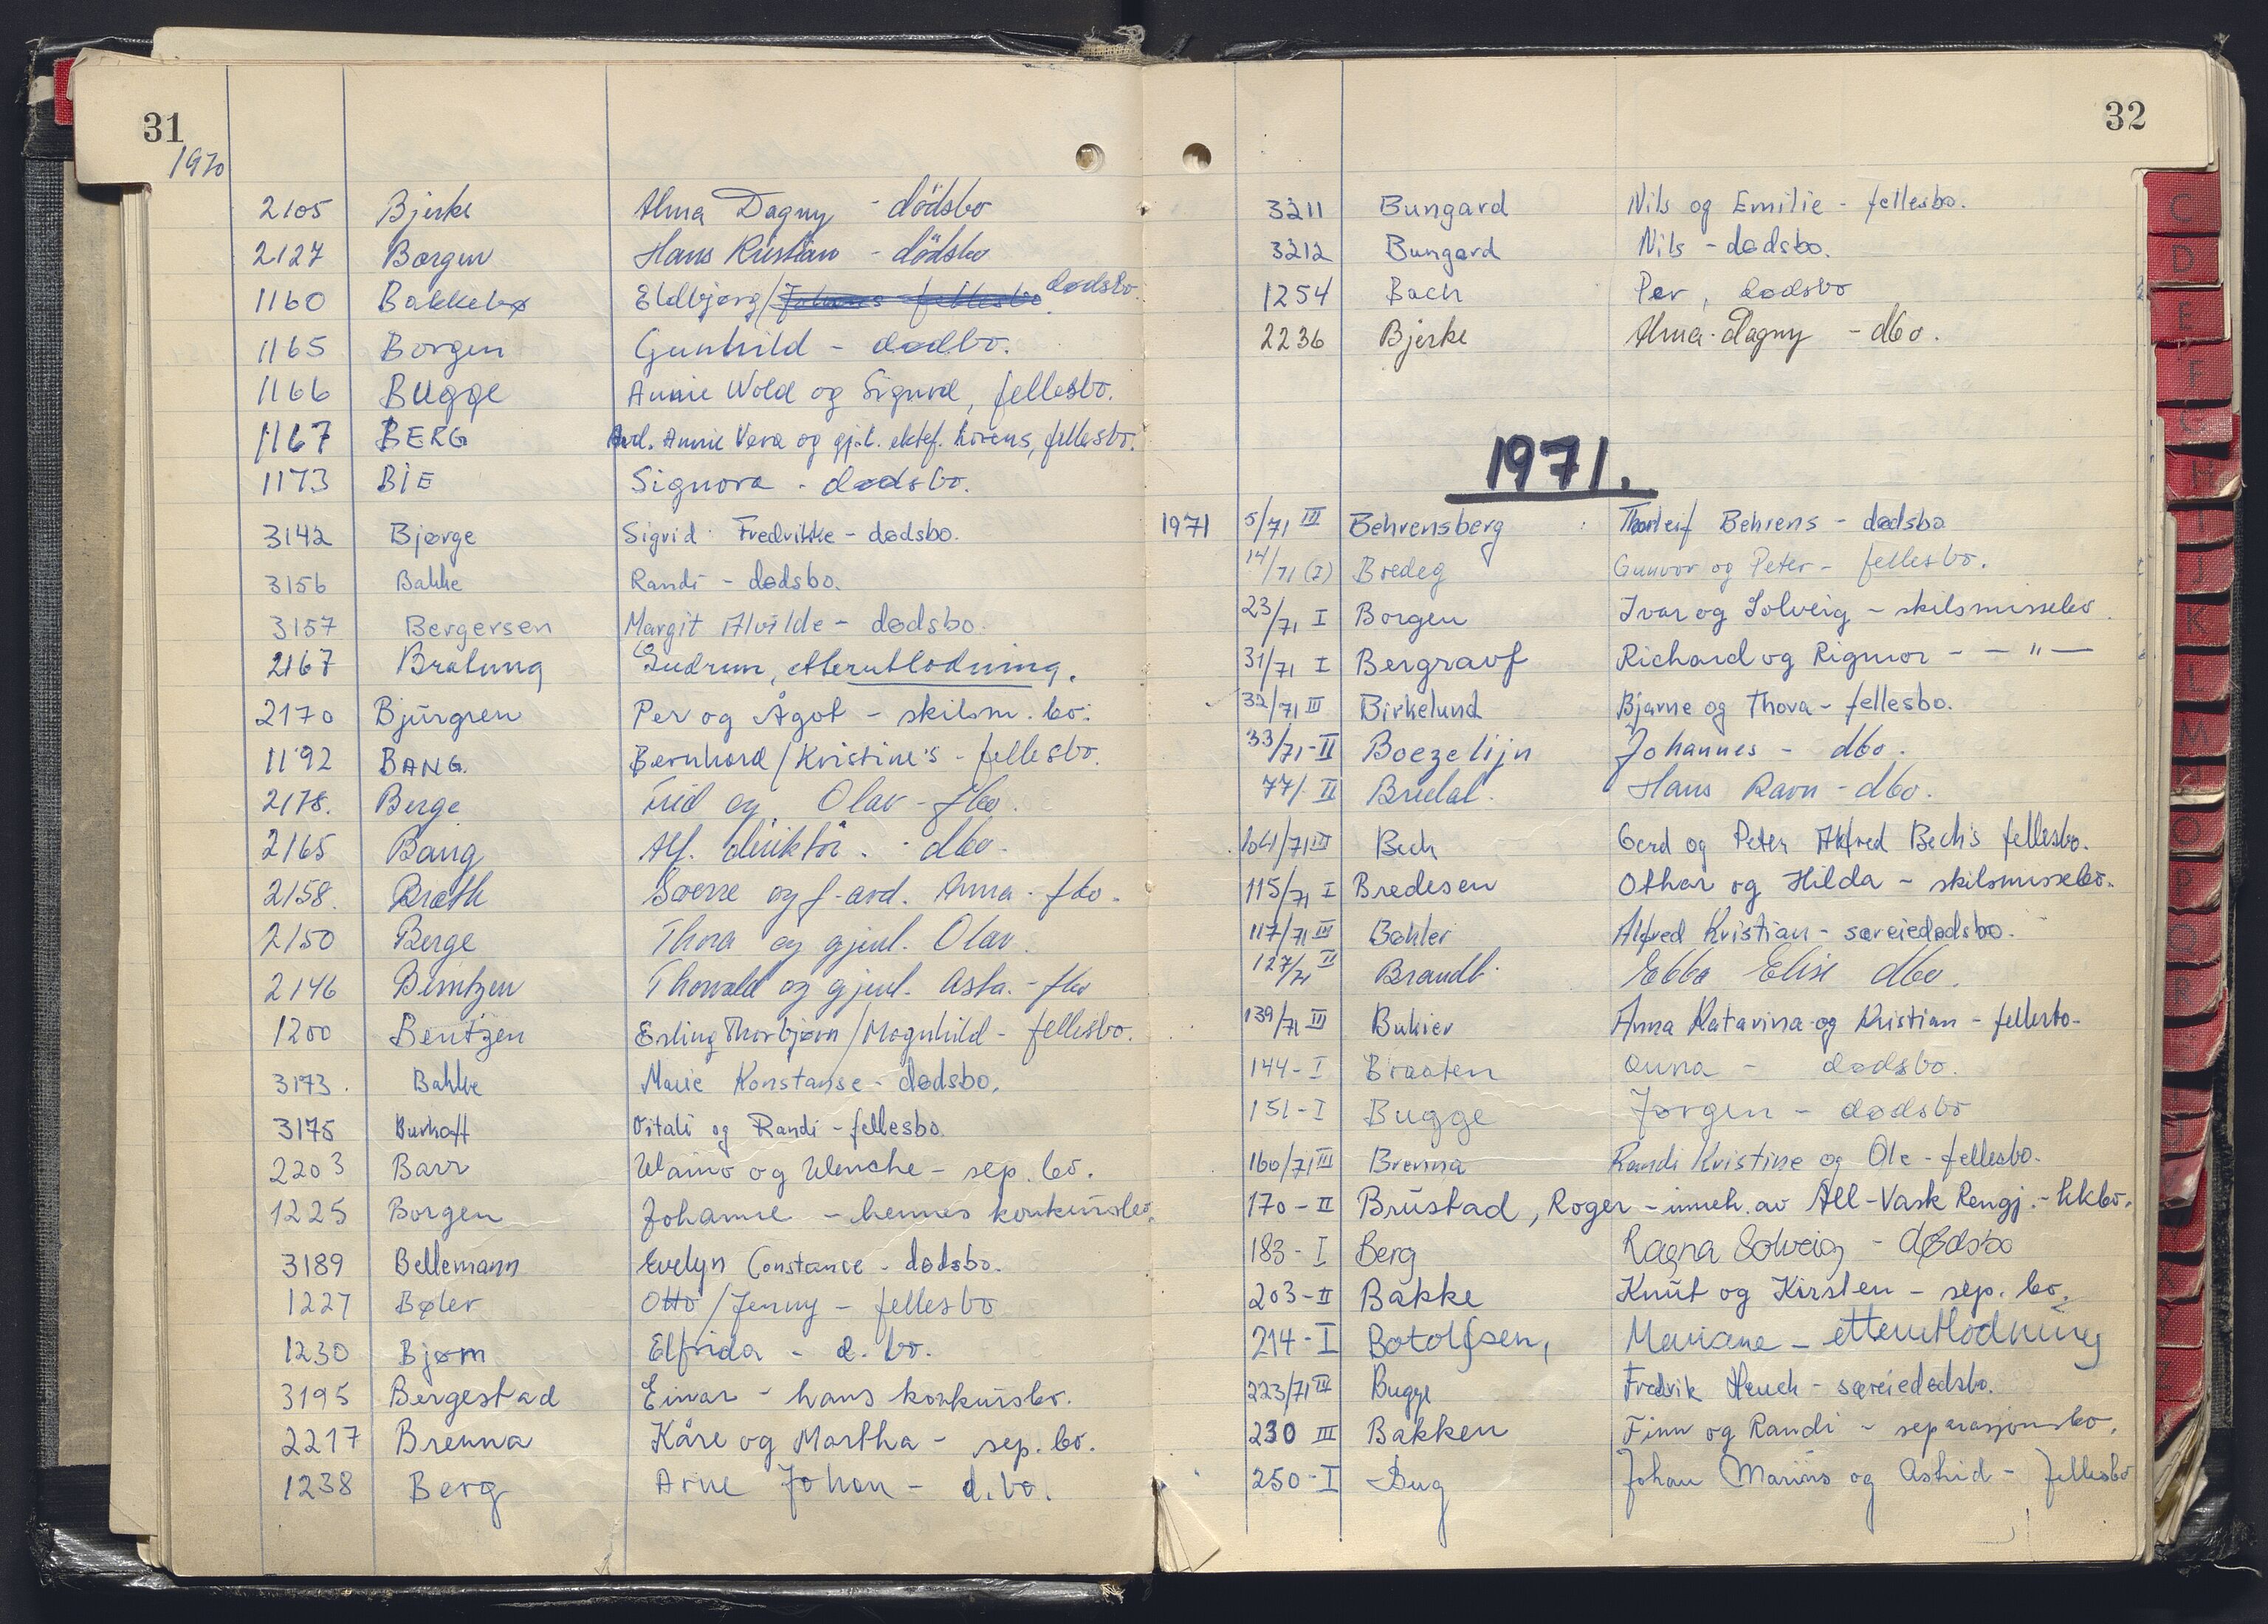 31
1970
2105 Bjerke Alma Dagny - dödsbo
2127 Borgen Hans Kristian - dödsbo
1160 Bakkebø Eldbjørg/ dødsbo.
1165 Borgen Gunhild - dødbo.
1166 BUgge Annie Wold og Sigurd, fellesbo.
1167 BERG Avd. Annie Vera og gj.l. ektef. Lorens, fellesbo.
1173 BIE Signora - dødsbo.
3142 Bjørge Sigrid Fredrikke - dødsbo.
3156 Bakke Randi - dødsbo.
3157 Bergersen Margit Alvilde - dødsbo.
2167 Gudrun, etterutlodning.
2170 Bjürgren Per og Ågot - skilsm. bo.
1192 BANG. Bernhard/Kristine's - fellesbo.
2178. Berge og Olav - fbo.
2165 Bang Alf. direktör. - dbo.
2158. Bråth Sverre og f. avd. Anna - fbo.
2150 Berge Thora og gjenl. Olav.
2146 Berntzen Thorvald og gjenl. Asta. - fbo
1200 Bentzen Erling Thorbjørn/Magnhild - fellesbo.
3173. Bakke Marie Konstanse - dødsbo.
3175 Burhoff Vitali og Randi - fellesbo.
2203 Barr Waino og Wenche - sep. bo.
1225 Borgen Johanne - hennes konkursbo.
3189 Bellemann Evelyn Constance - dødsbo.
1227 Bøler Otto/Jenny - fellesbo
1230 Bjørn Elfrida - d. bo.
3195 Bergestad Einar - hans konkursbo.
2217 Brenna Kåre og Martha - sep. bo.
1238 Berg Arne Johan - d. bo.
32
3211 Bungard Nils og Emilie - fellesbo.
3212 Bungard Nils - dødsbo.
1254 Bach Per, dødsbo
2236 Bjerke Alma Dagny - dbo.
1971.
1971 5/71 III Behrensberg Thorleif Behrens - dødsbo
14/71 (I) Bredeg Gunvor og Peter - fellesbo.
23/71 I Borgen Ivar og Solveig - skilsmissebo.
31/71 I Bergravf Richard og Rigmor - - " -
32/71 III Birkelund Bjarne og Thora - fellesbo.
33/71 - II Boezelijn Johannes - dbo.
77/ II Bredal. Hans Ravn - dbo.
104/71 III Bech Gerd og Peter Alfred Bech's fellesbo.
115/71 I Bredesen Othar og Hilda - skilsmissebo.
117/71 III Bøhler Alfred Kristian - særeiedødsbo.
127/71 II Brandt. Ebba Elise dbo.
139/71 III Bukier Anna Katarina og Kristian - fellesbo.
144 - I Braaten Anna - dødsbo.
151 - I Bugge Jørgen - dødsbo
160/71 III Brenna Randi Kristine og Ole - fellesbo.
170 - II Brustad, Roger - inneh. av All-Vask Rengj. - kkbo.
183 - I Berg Ragna Solveig - dødsbo
203 - II Bakke Knut og Kirsten - sep. bo.
214 - I Botolfsen, Mariane - etterutlodning
223/71 III Bugge Fredrik Heuch - særeiedødsbo.
230 III Bakken Finn og Randi - separasjonsbo.
250 - I Bug Johan Marius og Astrid - fellesbo
C
D
E
F
H
I
J
K
L
M
O
P
Q
R